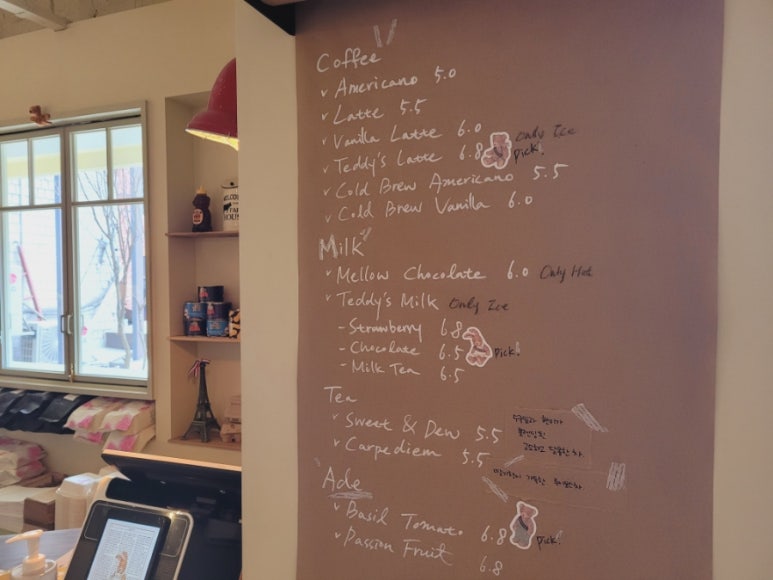 Coffee
Americano 5.0
Latte 5.5
Vanilla Latte 6.0
Teddy's Latte 6.8 Only Ice Pick!
Cold Brew Americano 5.5
Cold Brew Vanilla 6.0
Milk
Mellow Chocolate 6.0 Only Hot
Teddy's Milk Only Ice
- Strawberry 6.8
- Chocolate 6.5 Pick!
- Milk Tea 6.5
Tea
Sweet & Dew 5.5
Carpediem 5.5
Ade
Basil Tomato 6.8 Pick!
Passion Fruit 6.8